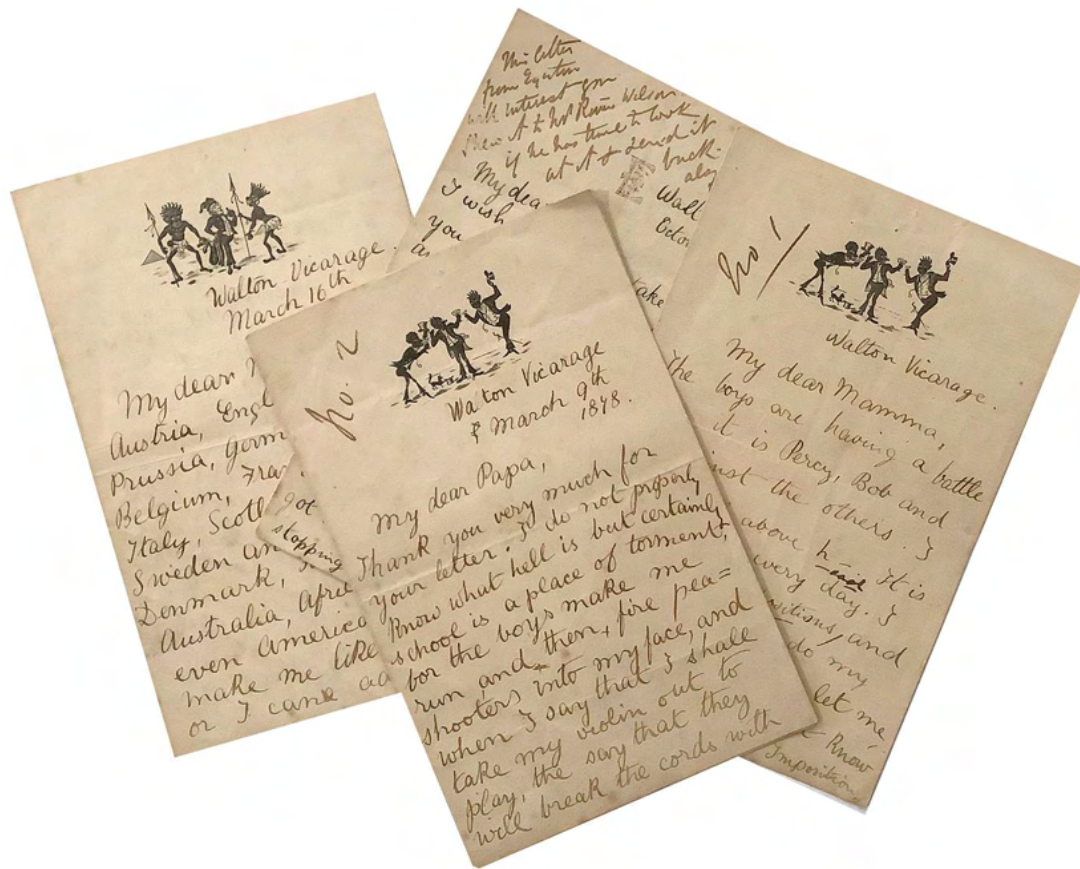 Walton Vicarage.
March 16th
My dear
Austria, Engl
Prussia, Germ
Belgium, Fran
Italy, Scotl
Sweden an
Denmark,
Australia, Afric
even America
make me like
or I came
This letter
from Egerton
will interest you
Shew it to Mr Rivers Wilson
if he has time to look
at it & send it
back
My dea
I wish
you
Wal
Octo
take
got
stopping
No 2
Walton Vicarage
March 9th
1878.
My dear Papa,
Thank you very much for
your letter. I do not properly
know what hell is but certainly
school is a place of torment,
for the boys make me
run and then, fire pea=
shooters into my face, and
when I say that I shall
take my violin out to
play, the say that they
will break the cords with
No 1
Walton Vicarage.
My dear Mamma,
The boys are having a battle
it is Percy, Bob and
just the others. I
above h It is
very day. I
ositions, and
do my
let me
know
Imposition